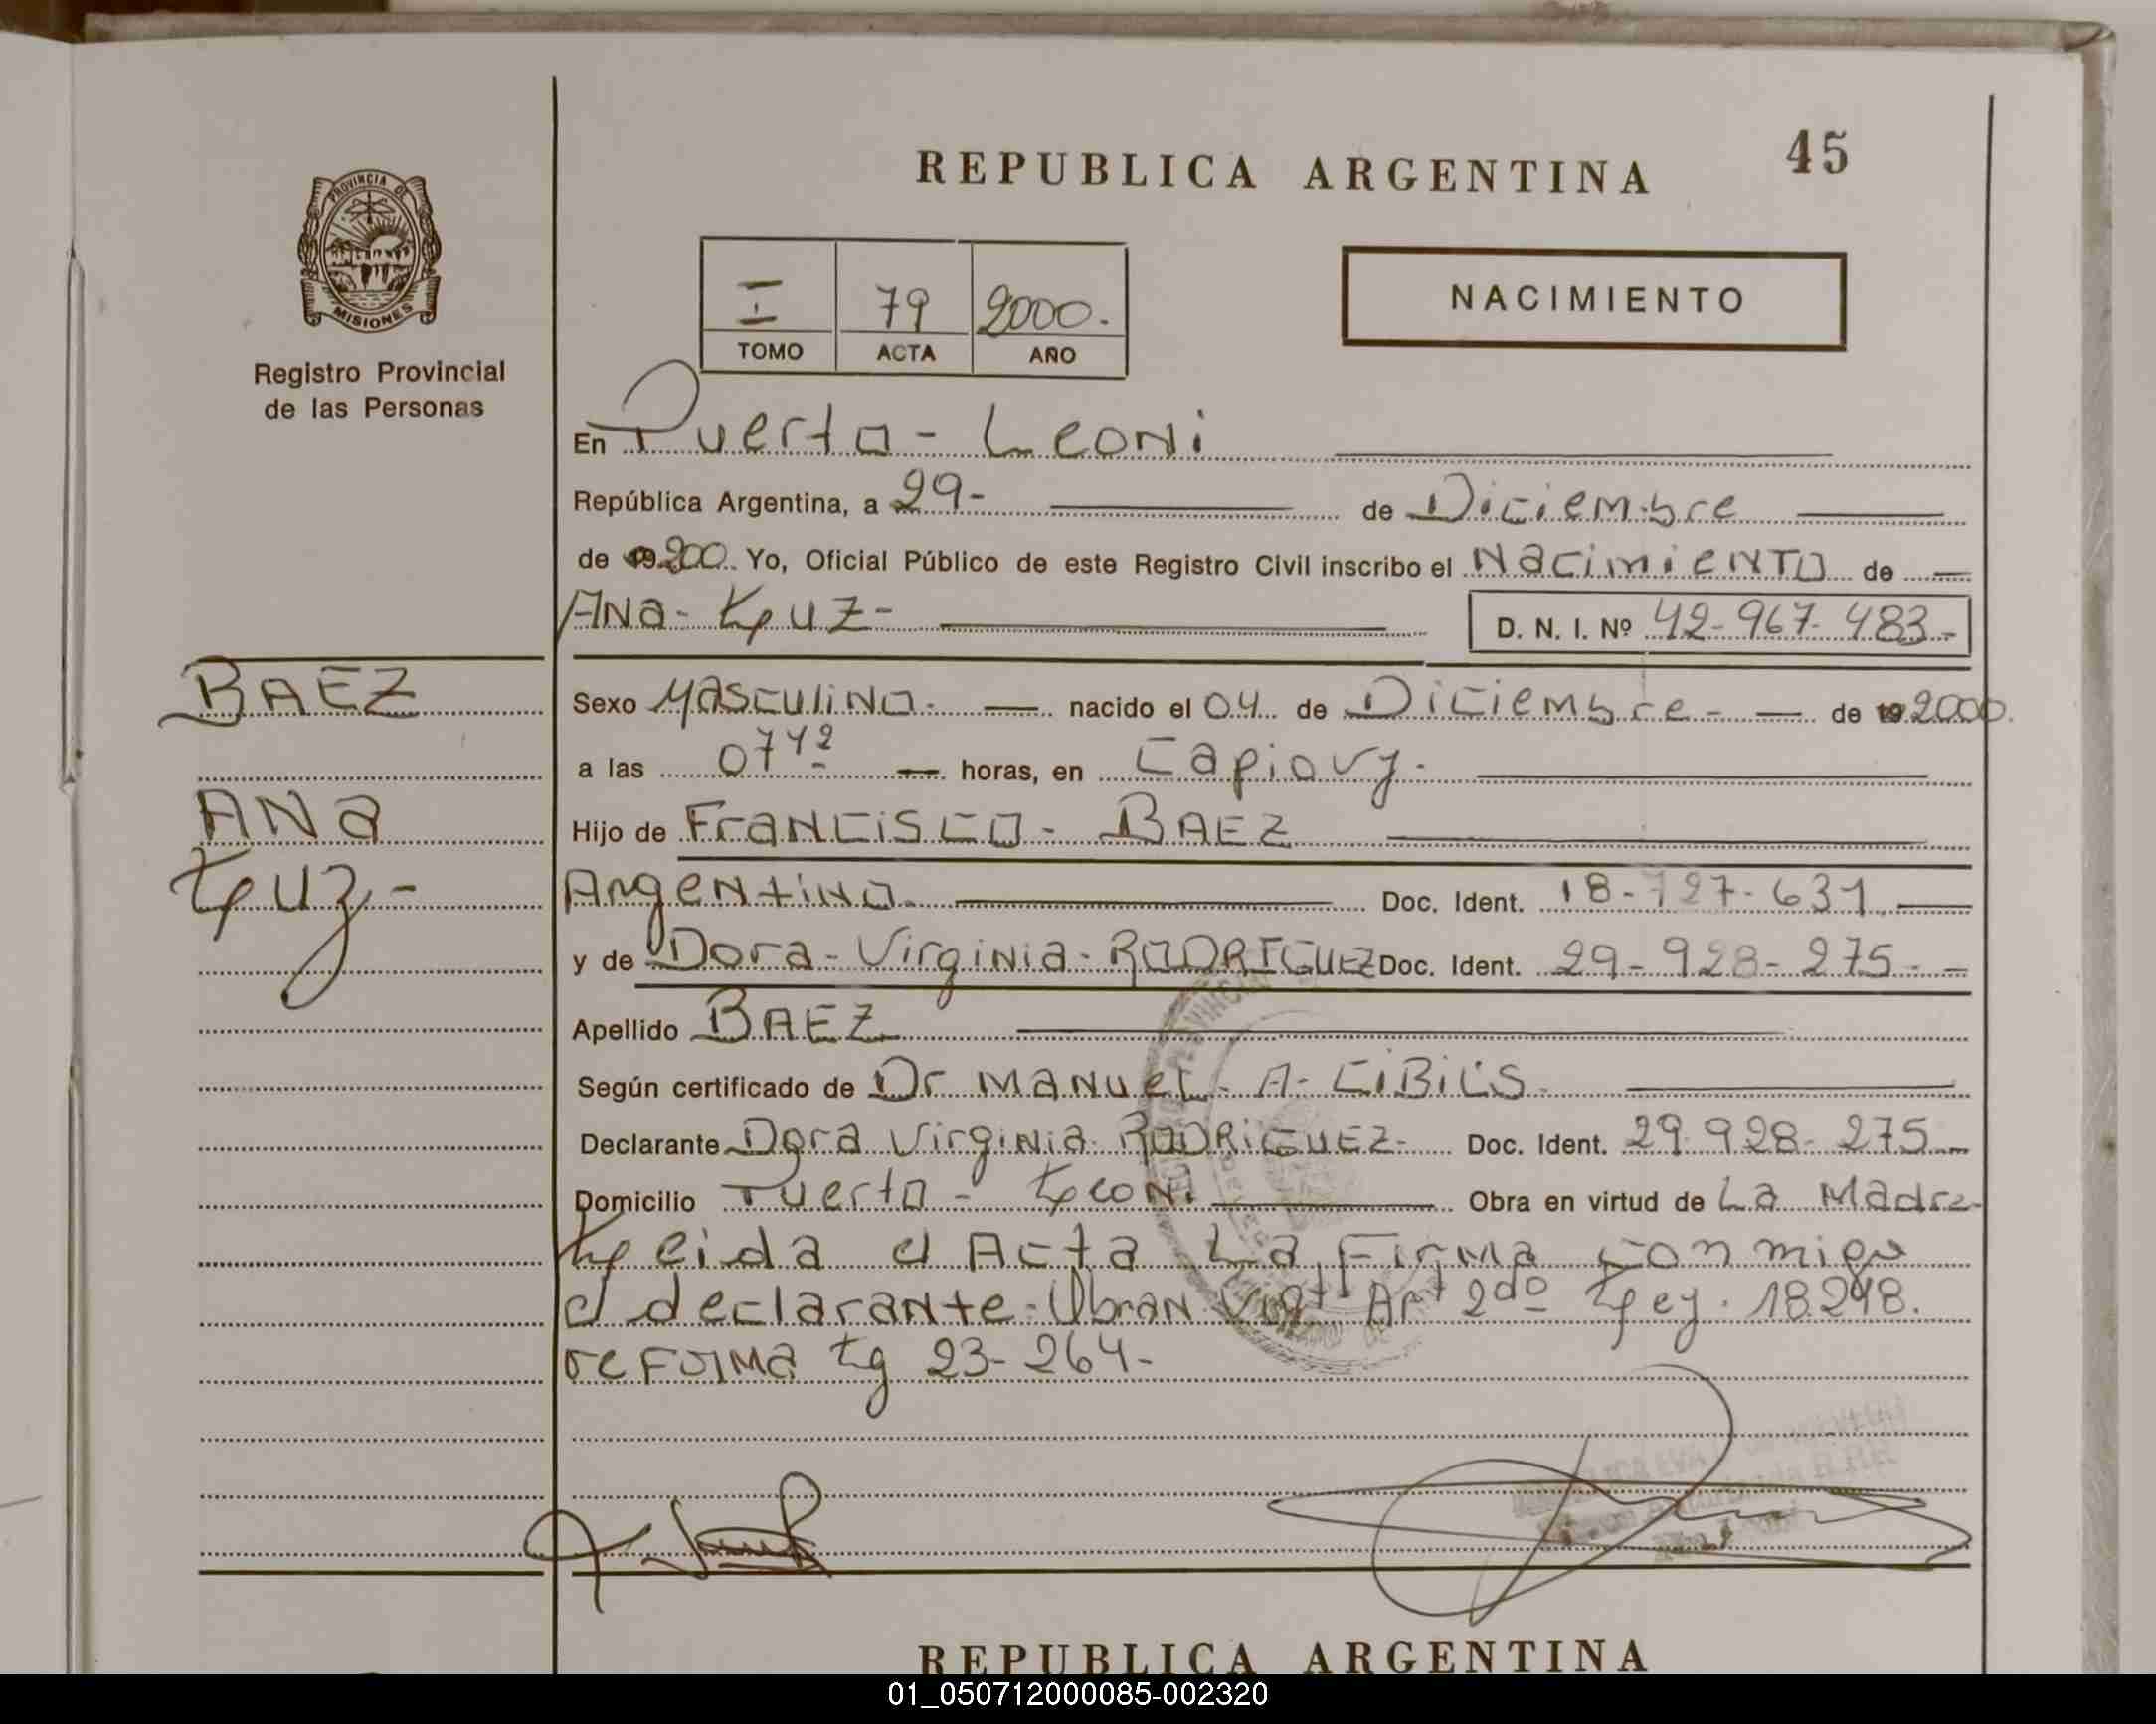 REPUBLICA ARGENTINA
45
PROVINCIA DE
MISIONES
Registro Provincial
de las Personas
I 79 2000.
TOMO ACTA AÑO
NACIMIENTO
En Puerto - Leoni
República Argentina, a 29- de Diciembre
de 19 200 Yo, Oficial Público de este Registro Civil inscribo el Nacimiento de
Ana - Luz - D. N. I. Nº 42-967-483-
BAEZ
ANa
Luz -
Sexo Masculino. nacido el 04 de Diciembre - de 19 2000.
a las 07 42 horas, en Capiovy.
Hijo de Francisco - BAEZ
Argentino. Doc. Ident. 18-727-631
y de Dora - Virginia - RODRIGUEZ Doc. Ident. 29-928-275-
Apellido BAEZ
Según certificado de Dr Manuel - A - CiBiLS.
Declarante Dora Virginia RODRiGUEZ- Doc. Ident. 29-928-275
Domicilio Puerto - Leoni Obra en virtud de La Madre-
Leida el Acta La Firma conmigo
el declarante. Obran Art 2do Ley. 18.248.
reForma Ley 23-264-
REPUBLICA ARGENTINA
01_050712000085-002320